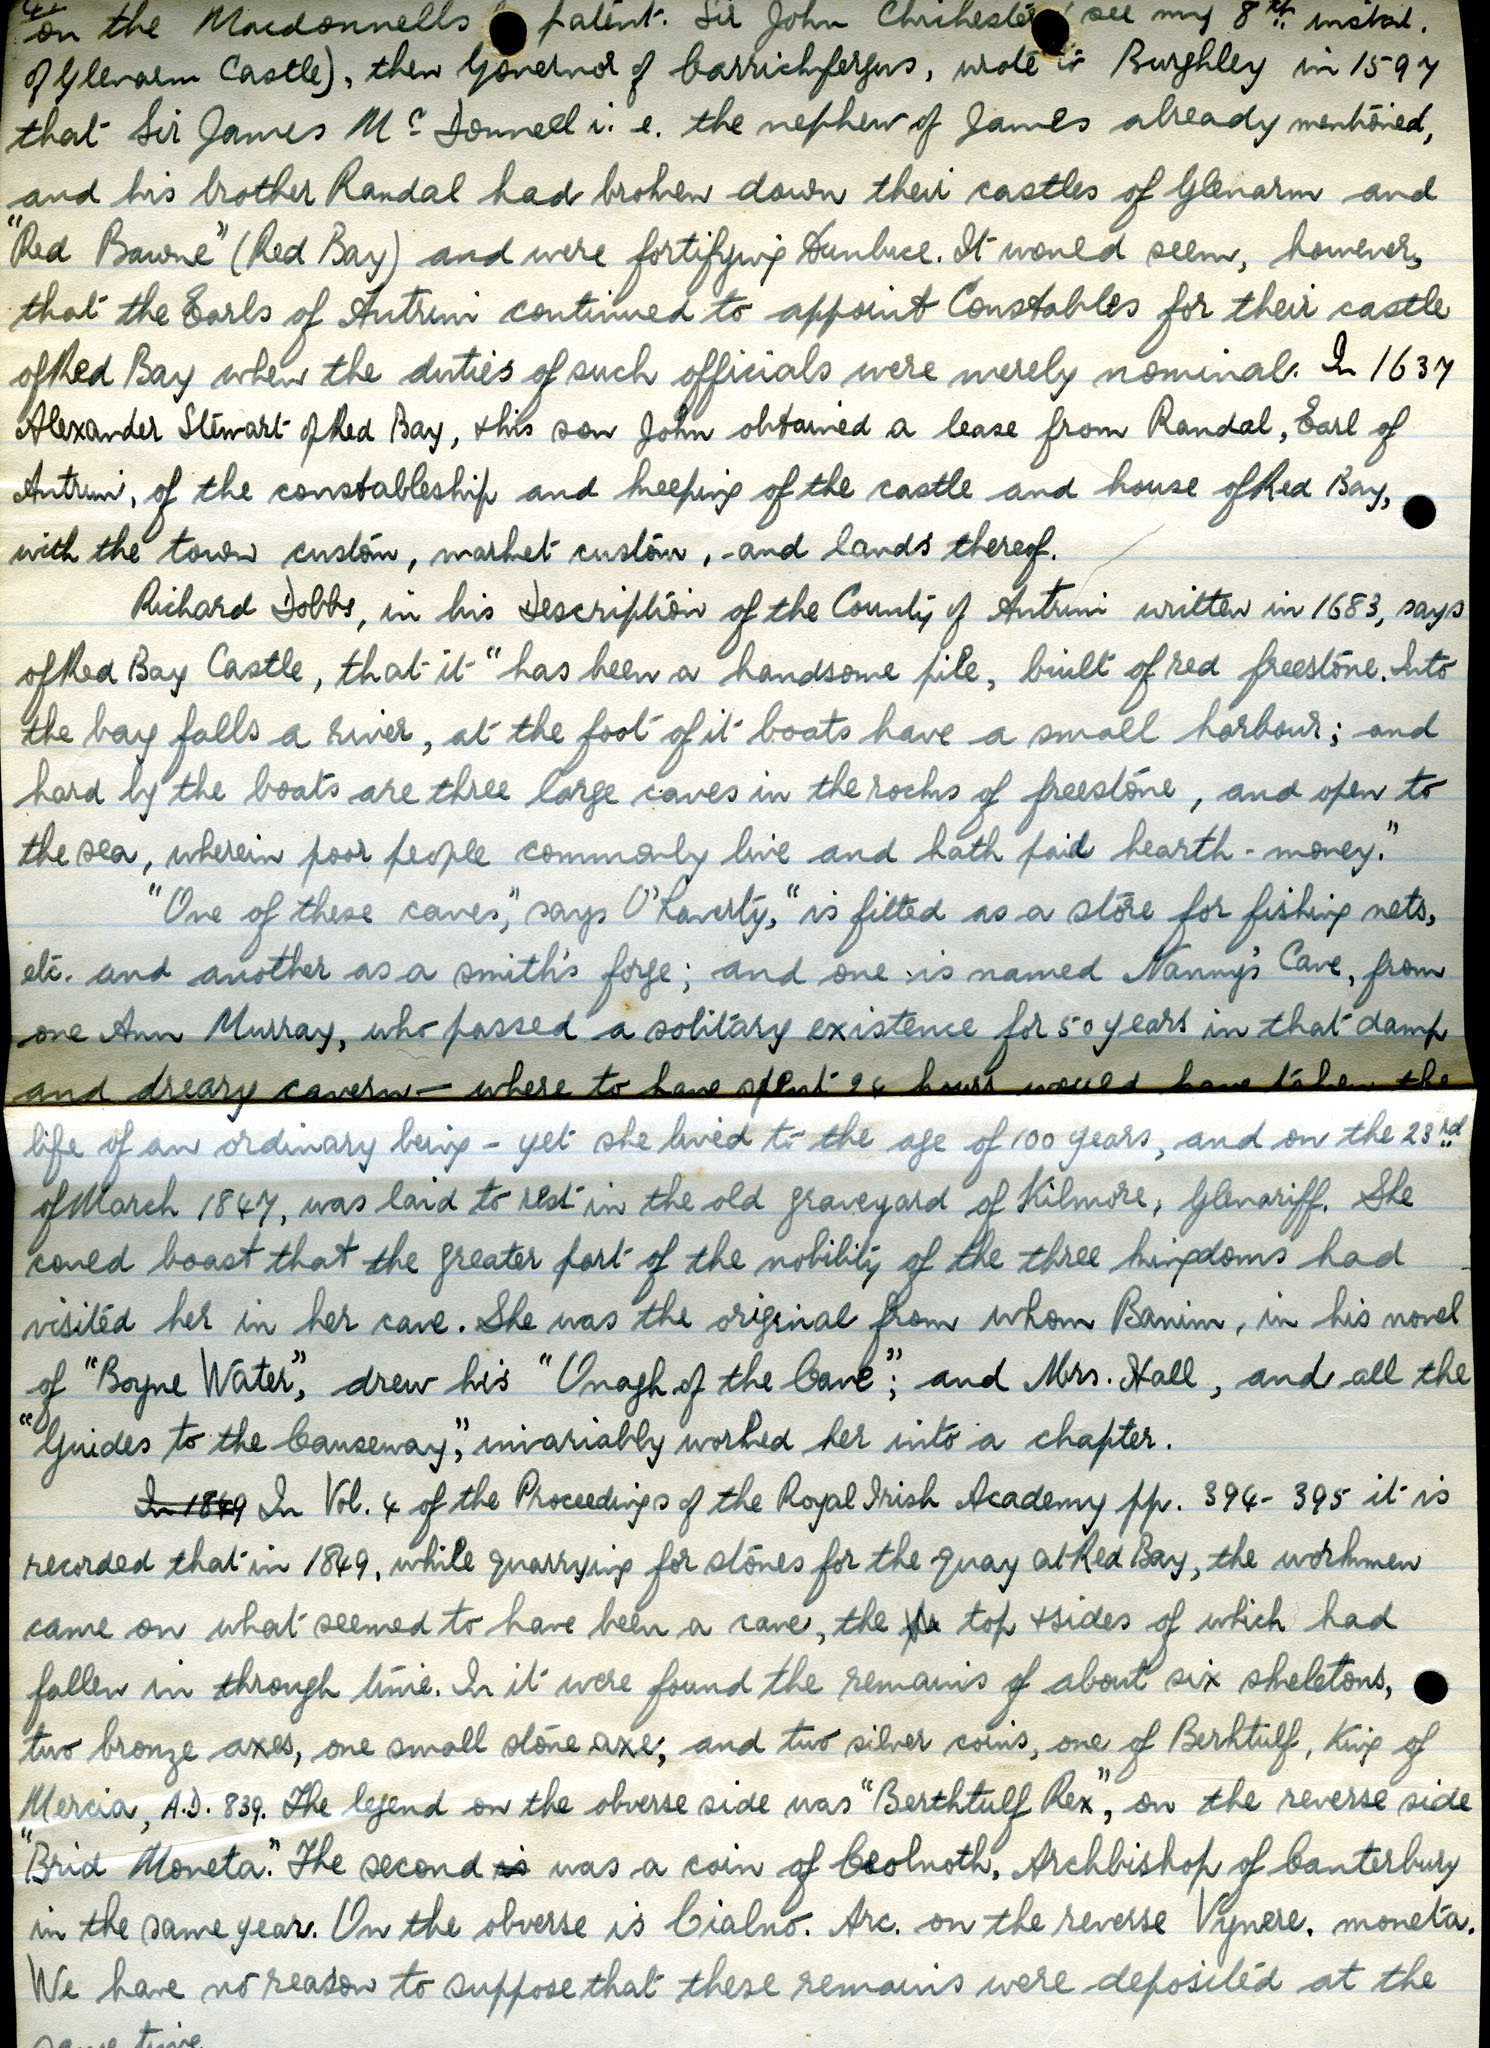 on the Macdonnells patent. Sir John Chichester (see my 8th instal.
of Glenarm Castle), then Governor of Carrickfergus, wrote to Burghley in 1597
that Sir James Mc Donnell i.e. the nephew of James already mentioned,
and his brother Randal had broken down their castles of Glenarm and
"Red Bawne" (Red Bay) and were fortifying Dunluce. It would seem, however,
that the Earls of Antrim continued to appoint Constables for their castle
of Red Bay when the duties of such officials were merely nominal. In 1637
Alexander Stewart of Red Bay, & his son John obtained a lease from Randal, Earl of
Antrim, of the constableship and keeping of the castle and house of Red Bay,
with the town custom, market custom, and lands thereof.
Richard Dobbs, in his Description of the County of Antrim written in 1683, says
of Red Bay Castle, that it "has been a handsome pile, built of red freestone. Into
the bay falls a river, at the foot of it boats have a small harbour; and
hard by the boats are three large caves in the rocks of freestone, and open to
the sea, wherein poor people commonly live and hath paid hearth-money."
"One of these caves," says O'Laverty, "is fitted as a store for fishing nets,
etc. and another as a smith's forge; and one is named Nanny's Cave, from
one Ann Murray, who passed a solitary existence for 50 years in that damp
and dreary cavern — where to have spent 24 hours would have taken the
life of an ordinary being - yet she lived to the age of 100 years, and on the 23rd
of March 1847, was laid to rest in the old graveyard of Kilmore, Glenariff. She
could boast that the greater part of the nobility of the three kingdoms had
visited her in her cave. She was the original from whom Banim, in his novel
of "Boyne Water", drew his "Onagh of the Cave"; and Mrs. Hall, and all the
"Guides to the Causeway", invariably worked her into a chapter.
In 1849 In Vol. 4 of the Proceedings of the Royal Irish Academy pp. 394-395 it is
recorded that in 1849, while quarrying for stones for the quay at Red Bay, the workmen
came on what seemed to have been a cave, the top & sides of which had
fallen in through time. In it were found the remains of about six skeletons,
two bronze axes, one small stone axe; and two silver coins, one of Berhtulf, King of
Mercia, A.D. 839. The legend on the obverse side was "Berthtulf Rex", on the reverse side
"Brid Moneta." The second is was a coin of Ceolnoth, Archbishop of Canterbury
in the same year. On the obverse is Cialno. Arc. on the reverse Vynere. moneta.
We have no reason to suppose that these remains were deposited at the
same time